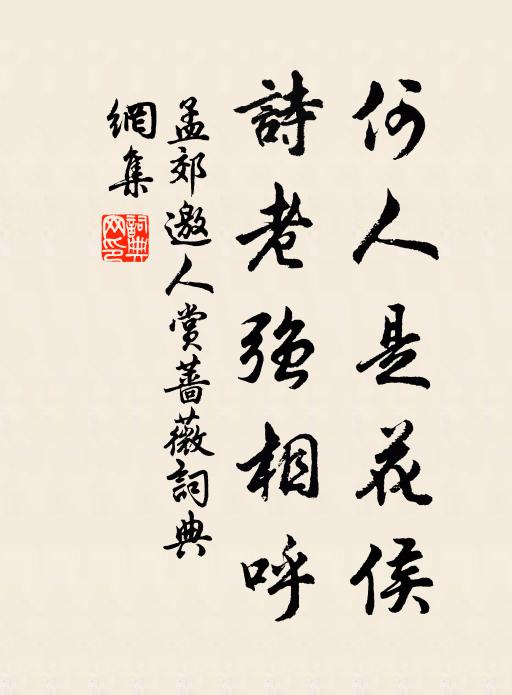 何人是花侯
詩老強相呼
孟郊邀人賞薔薇詞典
網集
詞典
网印